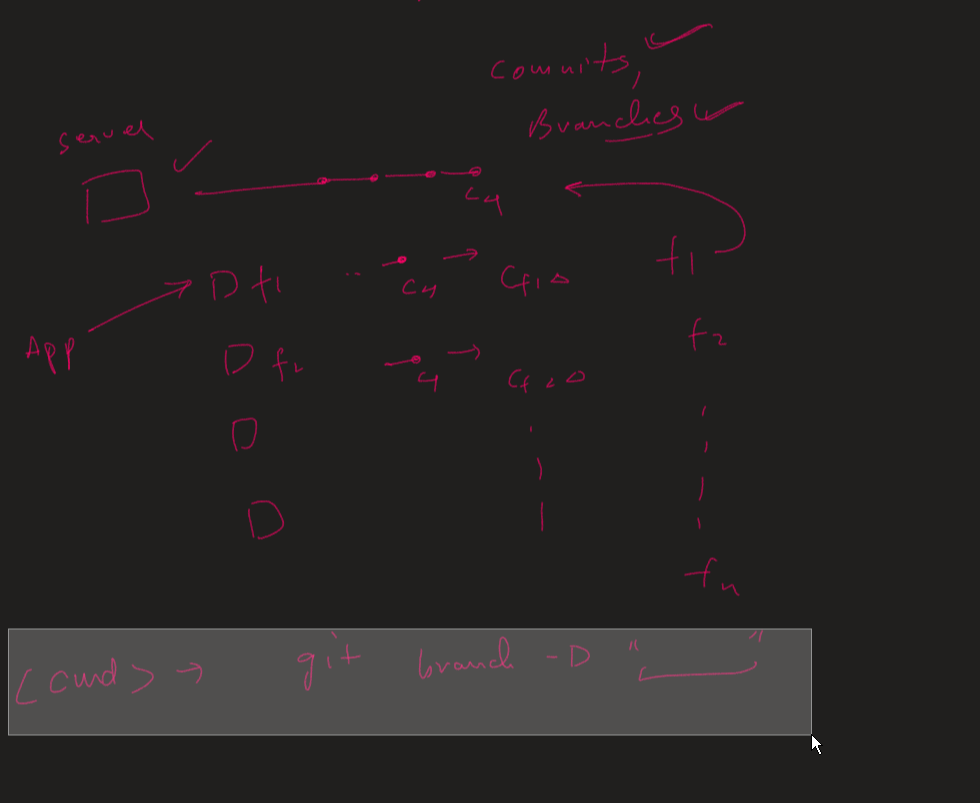 Commits,
Branches
Server
C4
D f1 .. C4 → Cf10 f1
App
D f2 C4 → Cf20 f2
D
D
fn
<cmd> → git branch -D " "